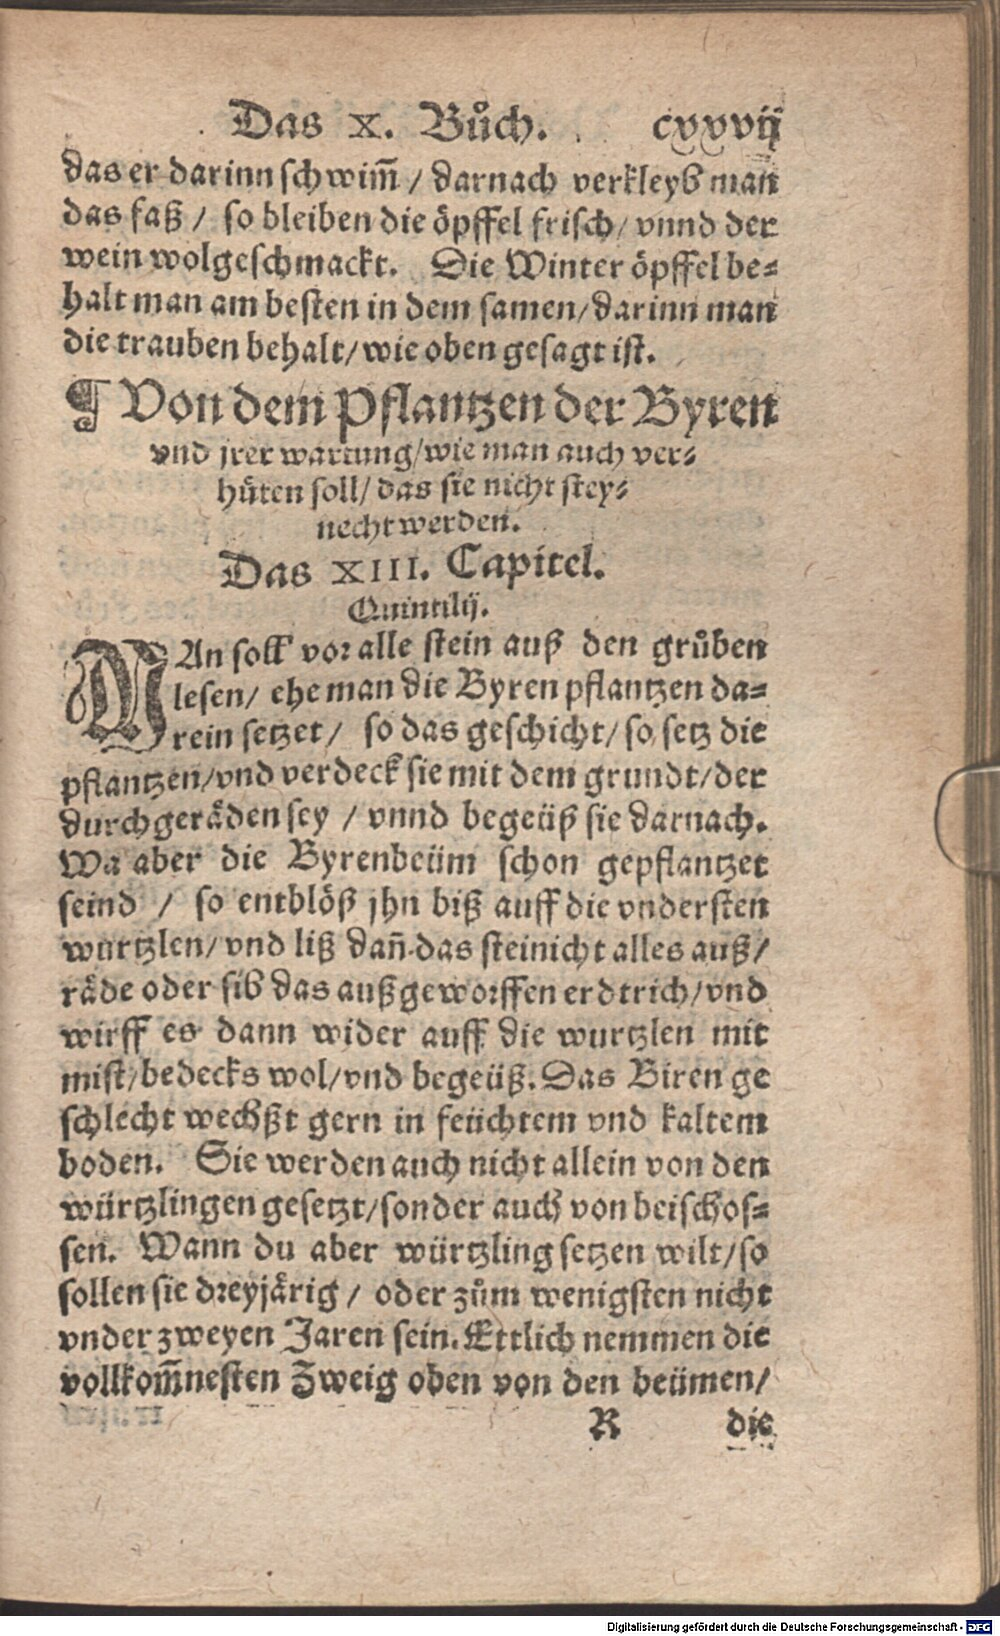 Das X. Bůch. cxxvij
das er darinn schwim̃ / darnach verkleyb man
das faß / so bleiben die öpffel frisch / vnnd der
wein wolgeschmackt. Die Winter öpffel be⸗
halt man am besten in dem samen / darinn man
die trauben behalt / wie oben gesagt ist.
¶ Von dem Pflantzen der Byren
vnd jrer wartung / wie man auch ver⸗
hüten soll / das sie nicht stey⸗
necht werden.
Das XIII. Capitel.
Quintilij.
MAn soll vor alle stein auß den grůben
lesen / ehe man die Byren pflantzen da⸗
rein setzet / so das geschicht / so setz die
pflantzen / vnd verdeck sie mit dem grundt / der
durchgeräden sey / vnnd begeüß sie darnach.
Wa aber die Byrenbeüm schon gepflantzet
seind / so entblöß jhn biß auff die vndersten
wurtzlen / vnd liß dañ das steinicht alles auß /
räde oder sib das außgeworffen erdtrich / vnd
wirff es dann wider auff die wurtzlen mit
mist / bedecks wol / vnd begeüß. Das Biren ge
schlecht wechßt gern in feüchtem vnd kaltem
boden. Sie werden auch nicht allein von den
würtzlingen gesetzt / sonder auch von beischos⸗
sen. Wann du aber würtzling setzen wilt / so
sollen sie dreyjärig / oder zům wenigsten nicht
vnder zweyen Jaren sein. Ettlich nemmen die
vollkom̃nesten Zweig oben von den beümen /
R die
Digitalisierung gefördert durch die Deutsche Forschungsgemeinschaft - DFG